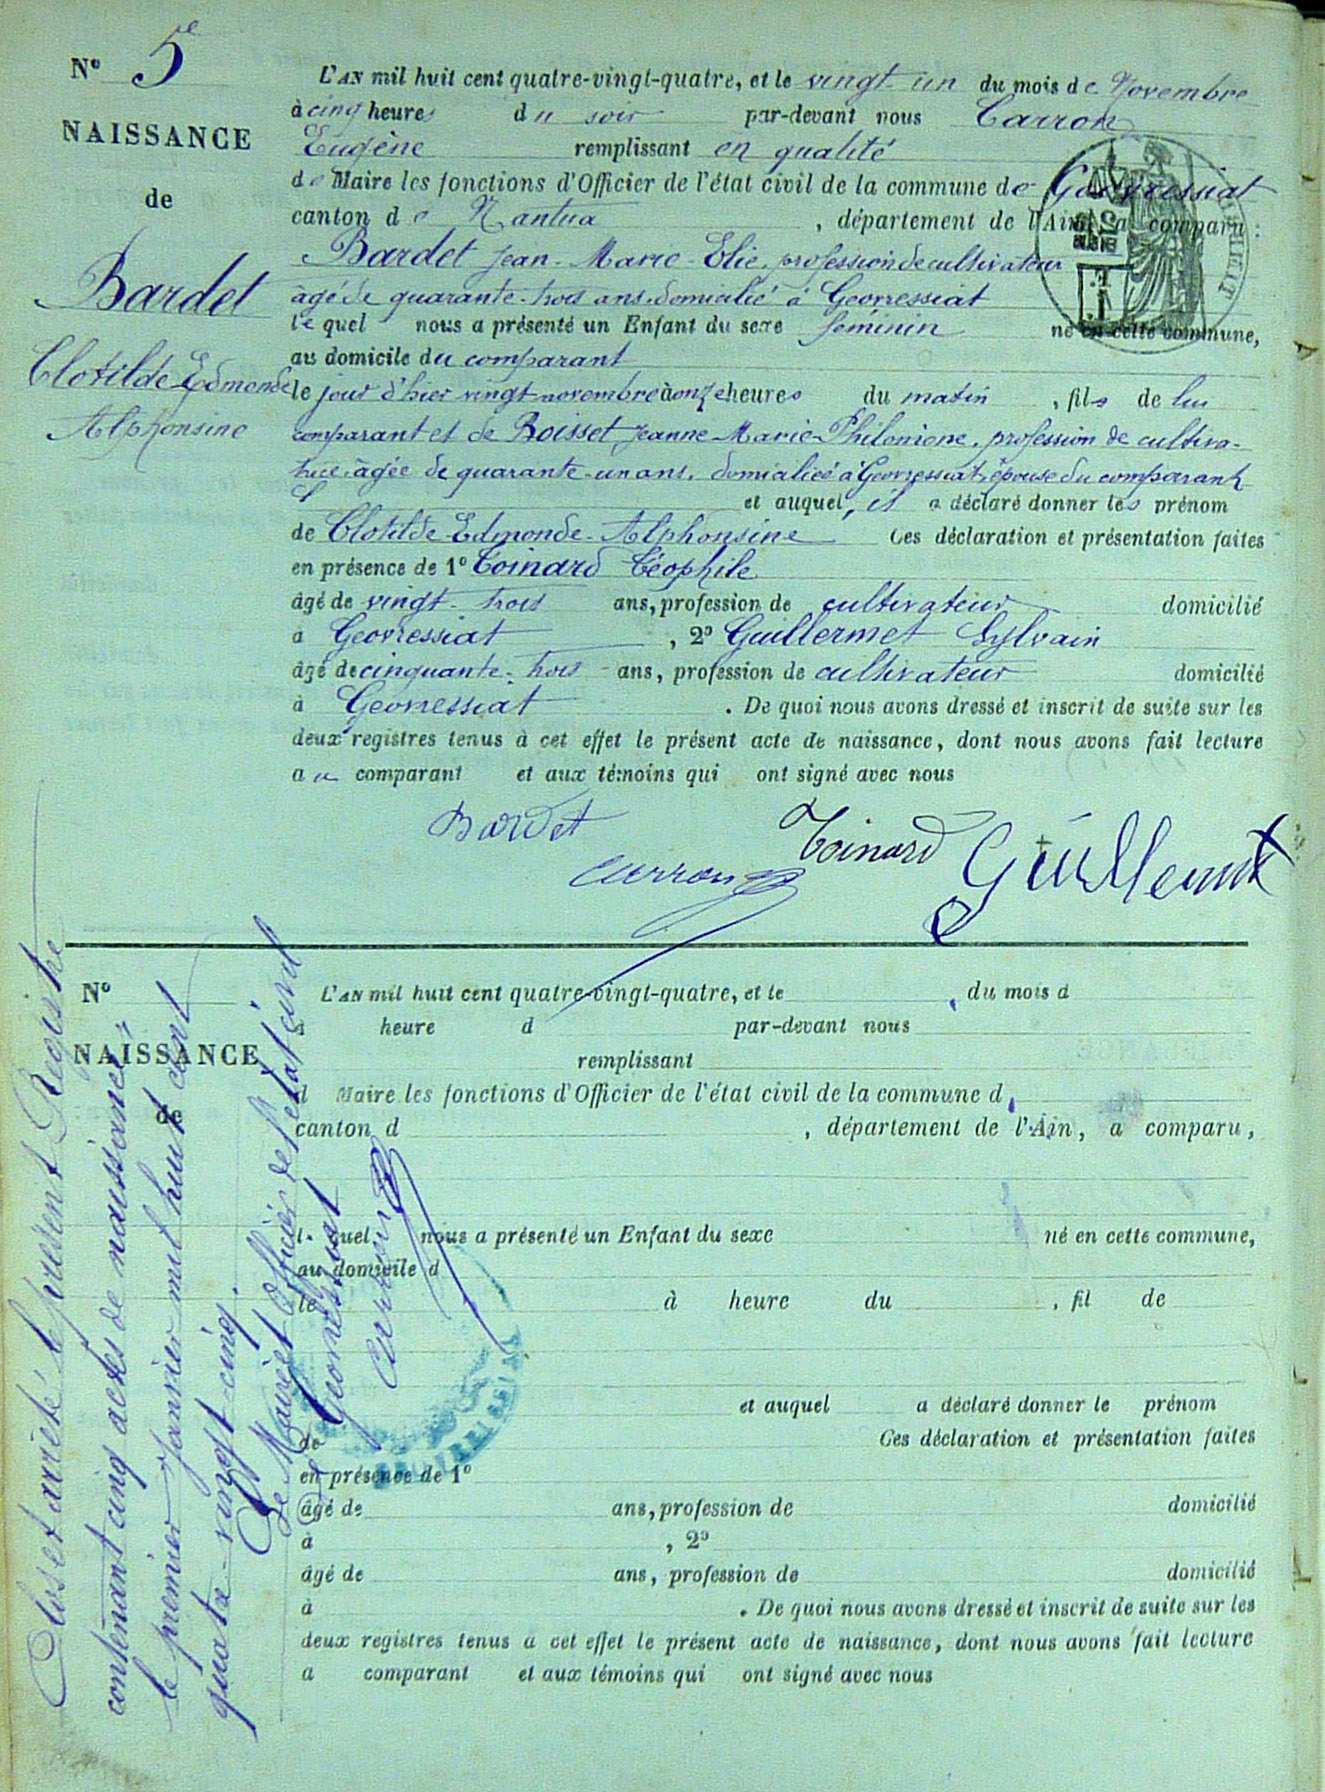 N° 5
NAISSANCE
de
Bardet
Clotilde Edmonde
Alphonsine
L'AN mil huit cent quatre-vingt-quatre, et le vingt-un du mois de Novembre
à cinq heures du soir par-devant nous Carron
Eugène remplissant en qualité
de Maire les fonctions d'Officier de l'état civil de la commune de Géovressiat
canton de Nantua, département de l'Ain, a comparu:
Bardet Jean-Marie-Elie, profession de cultivateur
âgé de quarante-trois ans, domicilié à Géovressiat
le quel nous a présenté un Enfant du sexe féminin né en cette commune,
au domicile du comparant
le jour d'hier vingt novembre à onze heures du matin, fils de lui
comparant et de Boisset Jeanne-Marie-Philomène, profession de cultiva-
trice, âgée de quarante-un ans, domiciliée à Géovressiat, épouse du comparant
et auquel, il a déclaré donner les prénom
de Clotilde-Edmonde-Alphonsine Ces déclaration et présentation faites
en présence de 1° Toinard Téophile
âgé de vingt-trois ans, profession de cultivateur domicilié
à Geovressiat, 2° Guillermet Sylvain
âgé de cinquante-trois ans, profession de cultivateur domicilié
à Geovressiat. De quoi nous avons dressé et inscrit de suite sur les
deux registres tenus à cet effet le présent acte de naissance, dont nous avons fait lecture
au comparant et aux témoins qui ont signé avec nous
Bardet
Toinard
Carron
Guillermet
N°
NAISSANCE
de
L'AN mil huit cent quatre-vingt-quatre, et le du mois d
à heure d par-devant nous
remplissant
d Maire les fonctions d'Officier de l'état civil de la commune d
canton d , département de l'Ain, a comparu,
l quel nous a présenté un Enfant du sexe né en cette commune,
au domicile d
le à heure du , fil de
et auquel a déclaré donner le prénom
de Ces déclaration et présentation faites
en présence de 1°
âgé de ans, profession de domicilié
à , 2°
âgé de ans, profession de domicilié
à . De quoi nous avons dressé et inscrit de suite sur les
deux registres tenus à cet effet le présent acte de naissance, dont nous avons fait lecture
a comparant et aux témoins qui ont signé avec nous
Clos et arrêté le présent Registre
contenant cinq actes de naissances
le premier Janvier mil huit cent
quatre-vingt-cinq.
Le Maire et Officier de l'état civil
de Geovressiat
Carron